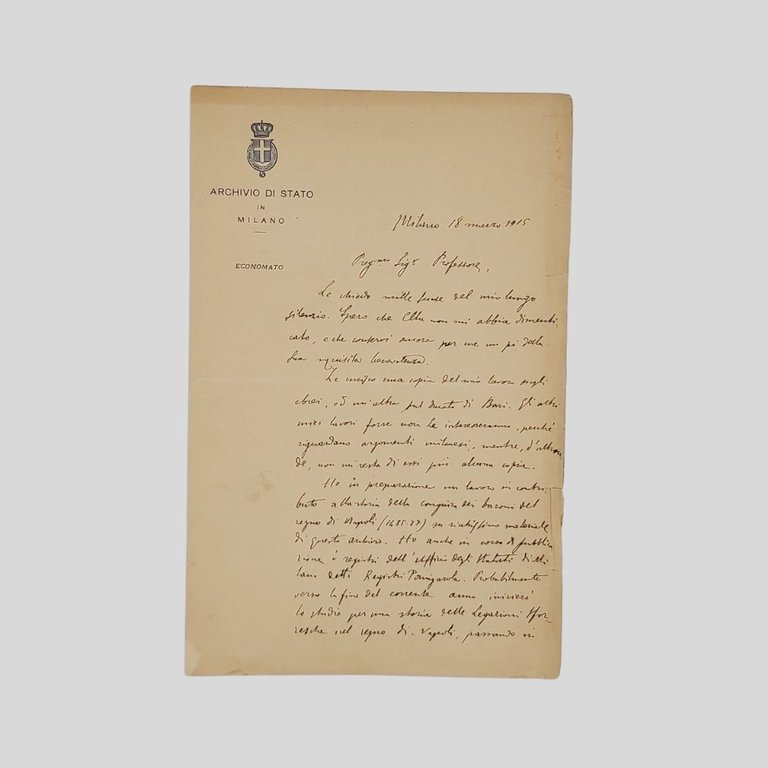 ARCHIVIO DI STATO
IN
MILANO
ECONOMATO
Milano 18 marzo 1915
Preg.mo Sig.r Professore,
Le chiedo mille scuse del mio lungo
silenzio. Spero che Ella non mi abbia dimenti
cato, e che conservi ancora per me un pò della
Sua squisita benevolenza.
Le una copia del mio lavoro sugli
ebrei, ed un'altra sul ducato di Bari. Gli altri
miei lavori forse non la interesseranno, perchè
riguardano argomenti milanesi, mentre, d'altron
de, non mi resta di essi più alcuna copia.
Ho in preparazione un lavoro in contri
buto alla storia della congiura dei baroni del
regno di Napoli (1485-87) su ricchissimo materiale
di questo archivio. Ho anche in corso di pubblica
zione i registri dell'Ufficio degli Statuti di Mi
lano detti Registri Panigarola. Probabilmente
verso la fine del corrente anno inizierò
lo studio per una storia delle Legazioni Sfor
zesche nel regno di Napoli, passando in